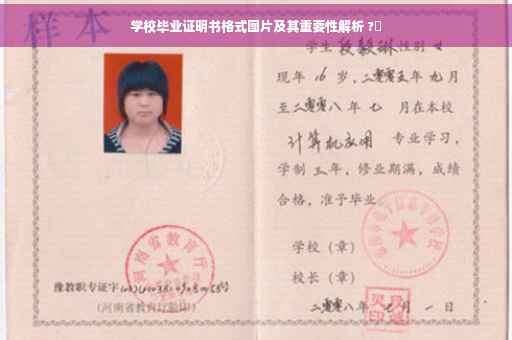 学校毕业证明书格式图片及其重要性解析 ?
样本
学生 段毅琳 性别 女
现年 16 岁，二零零五年 九 月
至二零零八年 七 月在本校
计算机应用 专业学习，
学制 三 年，修业期满，成绩
合格，准予毕业
学校（章）
校长（章）
二零零八年 七 月 一 日
河南省教育厅
豫教职专证字
(河南省教育厅验印)